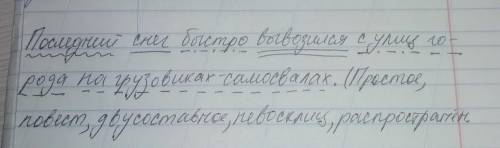 Последний снег быстро вывозился с улиц го-
рода на грузовиках-самосвалах. (Простое,
повест, двусоставное, невосклиц, распространён